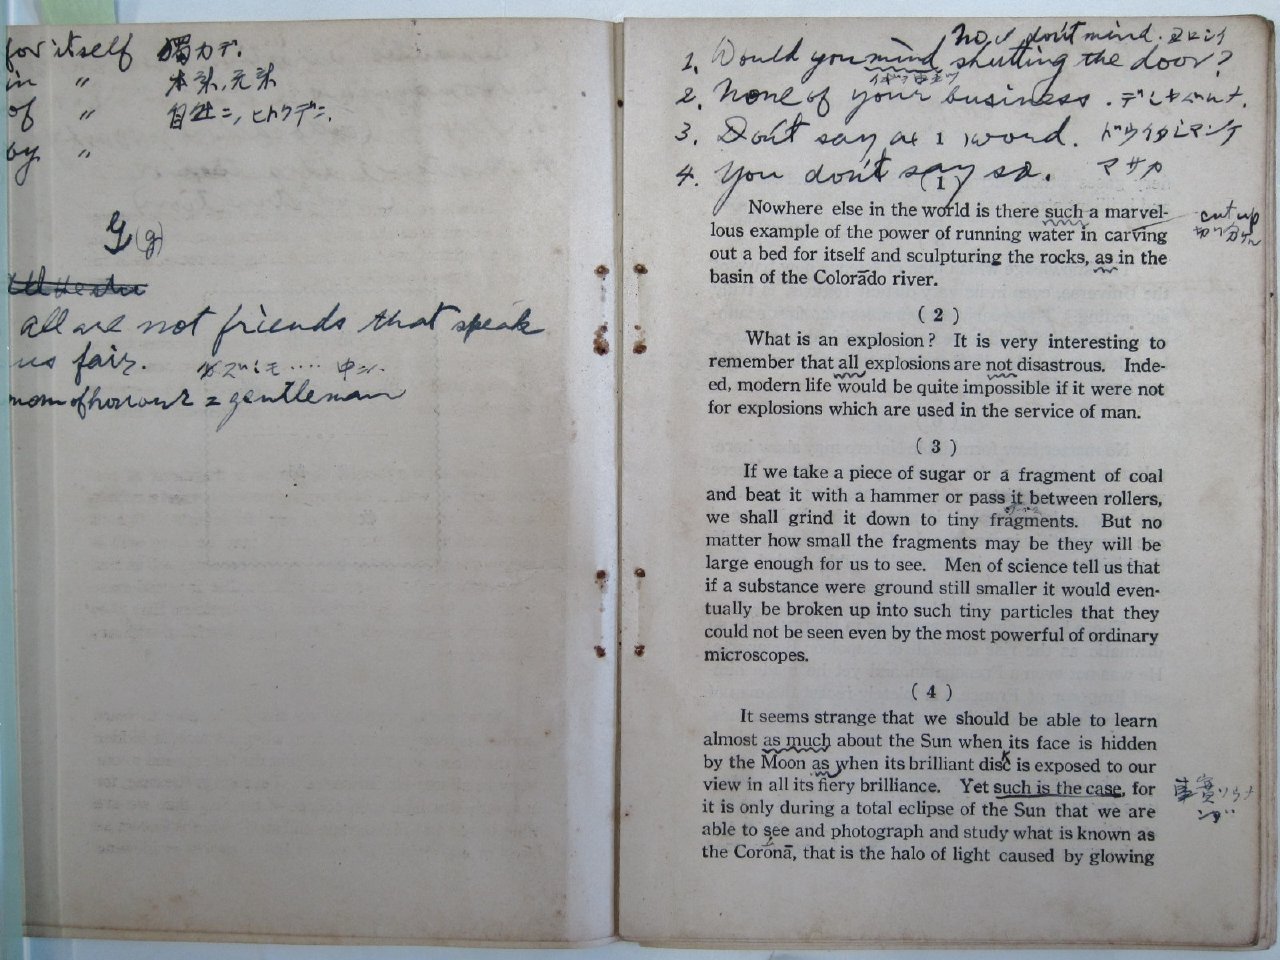 for itself 獨力デ.
in 〃 本来、元来
of 〃 自然ニ, ヒトリデニ.
by 〃
G (g)
All are not friends that speak
us fair. 必ズシモ....
man of honour = gentleman
No, I don't mind.
1. Would you mind shutting the door?
2. None of your business.
3. Don't say a word.
4. You don't say so.
(1)
Nowhere else in the world is there such a marvel-
lous example of the power of running water in carving
out a bed for itself and sculpturing the rocks, as in the
basin of the Colorādo river.
cut up
(2)
What is an explosion? It is very interesting to
remember that all explosions are not disastrous. Inde-
ed, modern life would be quite impossible if it were not
for explosions which are used in the service of man.
(3)
If we take a piece of sugar or a fragment of coal
and beat it with a hammer or pass it between rollers,
we shall grind it down to tiny fragments. But no
matter how small the fragments may be they will be
large enough for us to see. Men of science tell us that
if a substance were ground still smaller it would even-
tually be broken up into such tiny particles that they
could not be seen even by the most powerful of ordinary
microscopes.
(4)
It seems strange that we should be able to learn
almost as much about the Sun when its face is hidden
by the Moon as when its brilliant disc is exposed to our
view in all its fiery brilliance. Yet such is the case, for
it is only during a total eclipse of the Sun that we are
able to see and photograph and study what is known as
the Corōnā, that is the halo of light caused by glowing